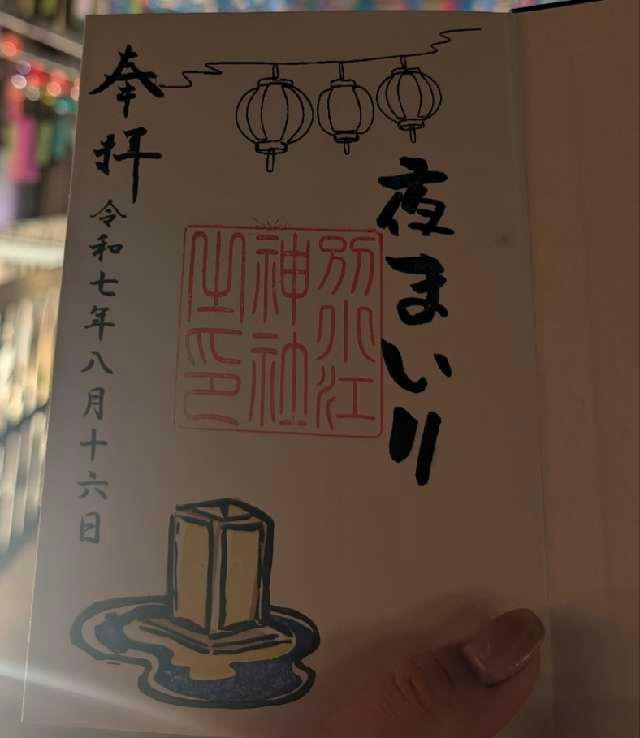 夜まいり
別小江
神社
之印
奉拝
令和七年八月十六日